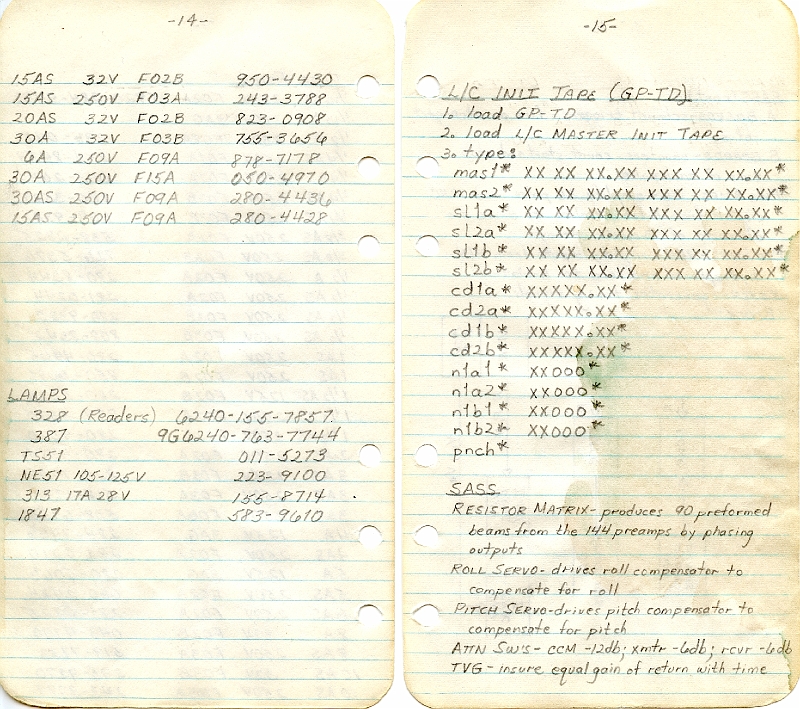 -14-
15AS 32V F02B 950-4430
15AS 250V F03A 243-3788
20AS 32V F02B 823-0908
30A 32V F03B 755-3656
6A 250V F09A 878-7178
30A 250V F15A 050-4970
30AS 250V F09A 280-4436
15AS 250V F09A 280-4428
LAMPS
328 (Readers) 6240-155-7857
387 9G6240-763-7744
TS51 011-5273
NE51 105-125V 223-9100
313 17A 28V 155-8714
1847 583-9610
-15-
L/C INIT TAPE (GP-TD)
1. load GP-TD
2. load L/C MASTER INIT TAPE
3. type:
mas1* XX XX XX.XX XXX XX XX.XX*
mas2* XX XX XX.XX XXX XX XX.XX*
sl1a* XX XX XX.XX XXX XX XX.XX*
sl2a* XX XX XX.XX XXX XX XX.XX*
sl1b* XX XX XX.XX XXX XX XX.XX*
sl2b* XX XX XX.XX XXX XX XX.XX*
cd1a* XXXXX.XX*
cd2a* XXXXX.XX*
cd1b* XXXXX.XX*
cd2b* XXXXX.XX*
n1a1* XX000*
n1a2* XX000*
n1b1* XX000*
n1b2* XX000*
pnch*
SASS
RESISTOR MATRIX- produces 90 preformed
beams from the 144 preamps by phasing
outputs
ROLL SERVO- drives roll compensator to
compensate for roll
PITCH SERVO-drives pitch compensator to
compensate for pitch
ATTN SW'S- CCM -12db; xmtr -6db; rcvr -6db
TVG- insure equal gain of return with time